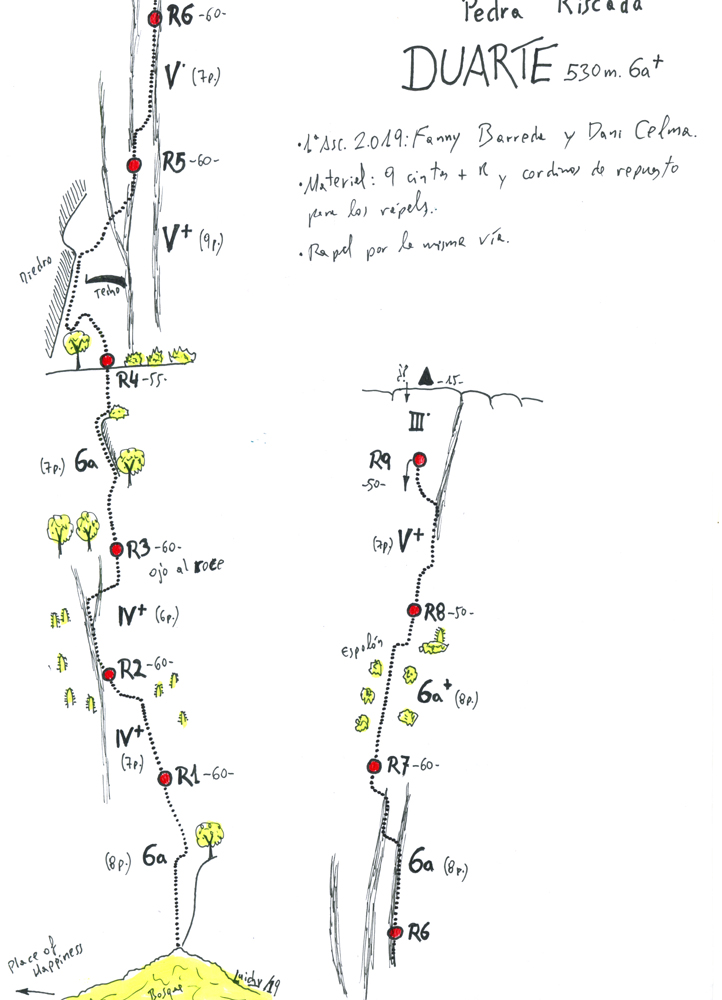 Pedra Riscada
DUARTE 530m. 6a+
·1ª Asc. 2.019: Fanny Barreda y Dani Celma.
·Material: 9 cintas + R y cordinos de repuesto
para los rápels..
·Rapel por la misma vía.
R6 -60-
V· (7p.)
R5 -60-
V+ (9p.)
Diedro
Techo
R4 -55-
(7p.) 6a
R3 -60-
ojo al roce
IV+ (6p.)
R2 -60-
IV+
(7p.)
R1 -60-
(8p.) 6a
Place of
Happiness
Bosque
Luichy/19
-15-
III·
R9
-50-
(7p.) V+
R8 -50-
Espolón
6a+ (8p.)
R7 -60-
6a (8p.)
R6